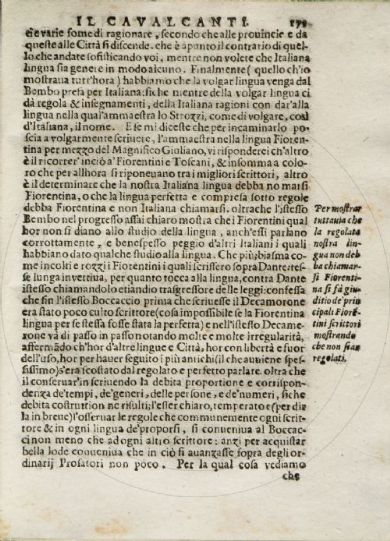 IL CAVALCANTI. 178
die varie some di ragionare, secondo che alle prouincie e da
queste alle Città si discende. che è apunto il contrario di quel-
lo, che andate sofisticando voi, mentre non volete che Italiana
lingua sia genere in modo alcuno. Finalmente (quello ch'io
mostraua tutt'hora) habbiamo che la volgar lingua venga dal
Bembo presa per Italiana: siche mentre della volgar lingua ci
dà regola & insegnamenti, della Italiana ragioni con dar'alla
lingua nella qual'ammaestra lo Strozzi, come di volgare, così
d'Italiana, il nome. E se mi diceste che per incaminarlo po-
scia a volgarmente scriuere, l'ammaestra nella lingua Fioren-
tina per mezzo del Magnifico Giuliano, vi risponderei ch'altro
è il ricorrer'inciò a' Fiorentini e Toscani, & in somma a colo-
ro che per allhora si riponeuano tra i migliori scrittori, altro
è il determinare che la nostra Italiana lingua debba no marsi
Fiorentina, o che la lingua perfetta e compresa sotto regole
debba Fiorentina e non Italiana chiamarsi. oltrache l'istesso
Bembo nel progresso assai chiaro mostra che i Fiorentini qual
hor non si diano allo studio della lingua, anch'essi parlano
corrottamente, e benespesso peggio d'altri Italiani i quali
habbiano dato qualche studio alla lingua. Che più; biasma co-
me incolti e rozzi i Fiorentini i quali scrissero sopra Dante: res-
se lunga invettiua, per quanto tocca alla lingua, contra Dante
istesso chiamandolo etiandio trasgressore delle leggi: confessa
che fin l'istesso Boccaccio prima che scriuesse il Decamorone
era stato poco culto scrittore (cosa impossibile se la Fiorentina
lingua per se stessa fosse stata la perfetta) e nell'istesso Decame-
rone va di passo in passo notando molte e molte irregularità,
afferm̄ādo ch'hor d'altre lingue e Città, hor con libertà e fuor
dell'uso, hor per hauer seguito i più antichi (il che auiene spes-
sissimo) s'era scostato dal regolato e perfetto parlare. oltra che
il conseruar'in scriuendo la debita proportione e corrispon-
denza de'tempi, de'generi, delle persone, e de'numeri, siche
debita costruttione ne risulti, l'esser chiaro, temperato (per dir-
la in breue) l'osseruar le regole che communemente ogni scrit-
tore & in ogni lingua de'proporsi, si conueniua al Boccac-
ci non meno che ad ogni altro scrittore: anzi per acquistar
bella lode conueniua che in ciò si auanzasse sopra degli or-
dinarij Prosatori non poco. Per la qual cosa vediamo
che
Per mostrar
tuttauia che
la regolata
nostra lin-
gua non deb-
ba chiamar-
si Fiorenti-
na si fà giu-
ditio de' prin-
cipali Fioren-
tini scrittori
mostrando
che non sian
regolati.